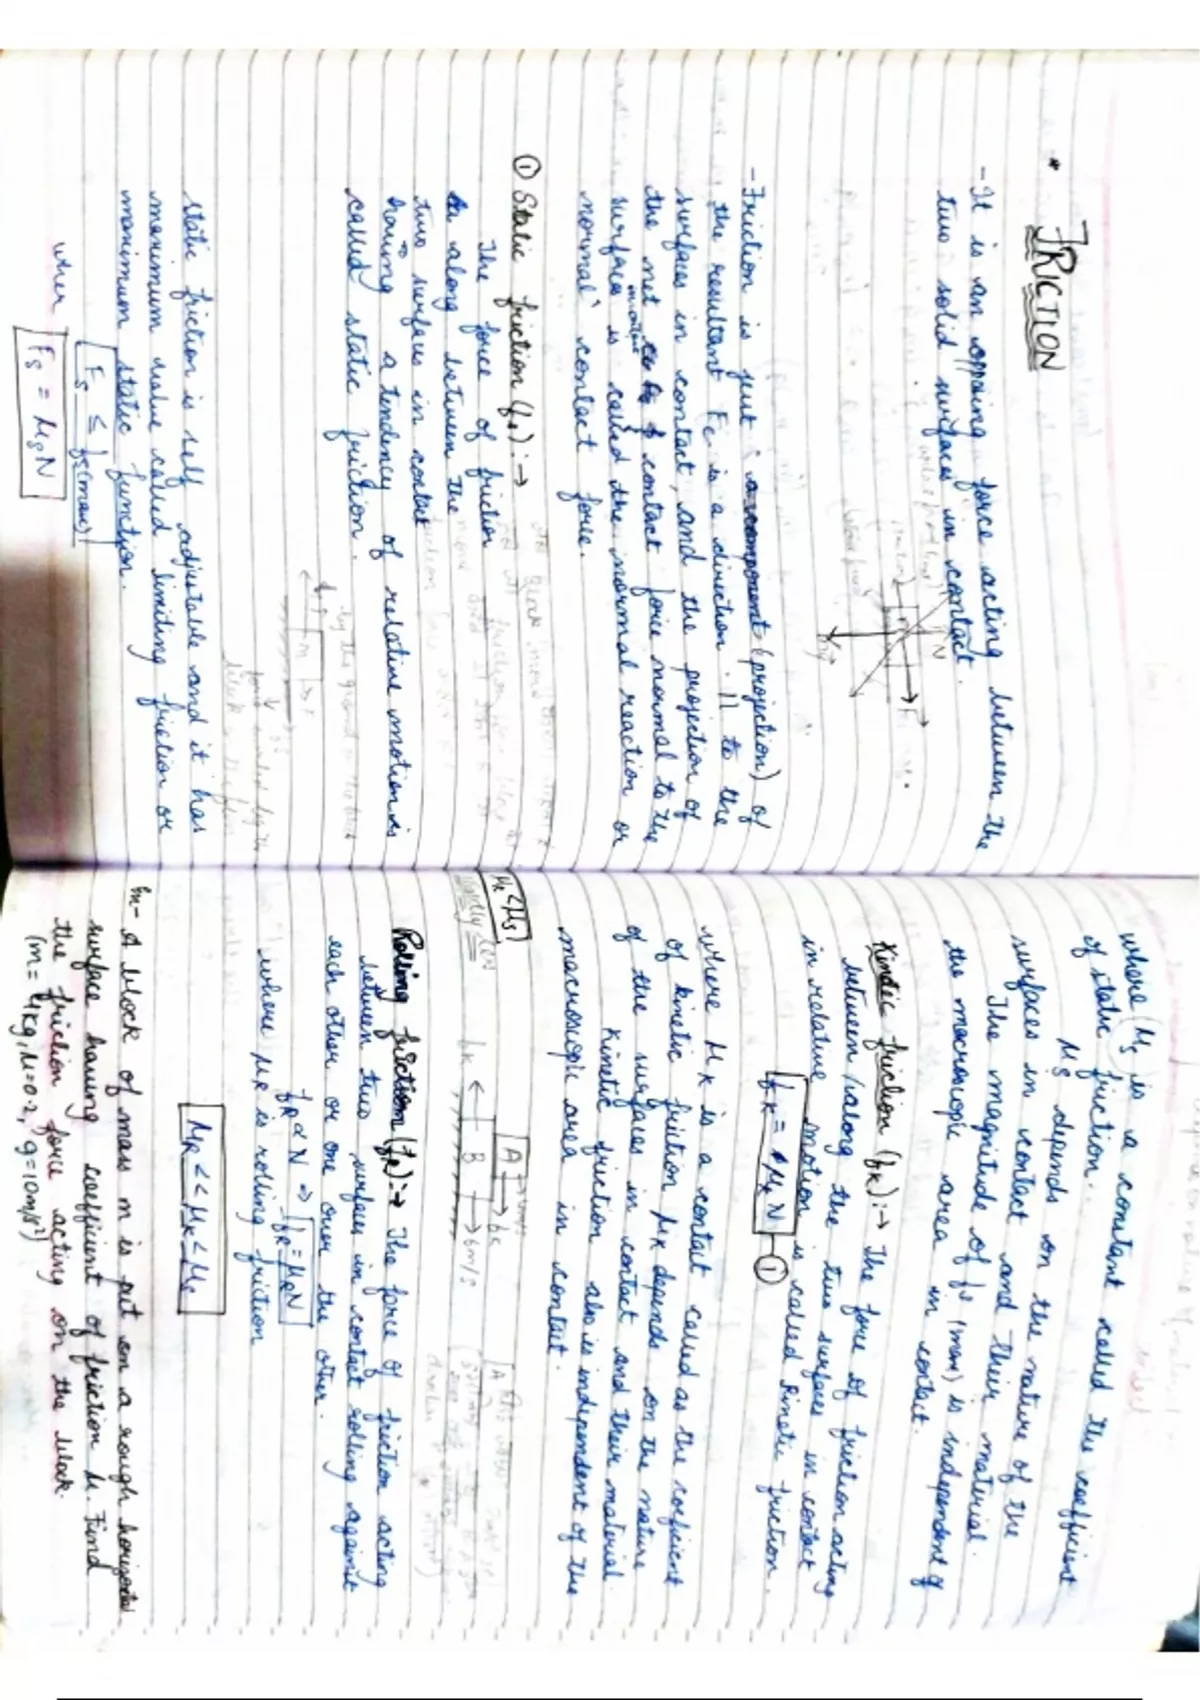 * FRICTION
- It is an opposing force acting between the
two solid surfaces in contact.
N
F
mg
- Friction is just a component (projection) of
the resultant Fc is a direction || to the
surfaces in contact, and the projection of
the net contact force normal to the
surface is called the normal reaction or
normal contact force.
① Static friction (fs) :→
The force of friction
along between the
two surfaces in contact
having a tendency of relative motion is
called static friction.
static friction is self adjustable and it has
maximum value called limiting friction or
maximum static function.
Fs ≤ fs(max)
when Fs = μsN
where (μs is a constant called the coefficient
of static friction.
μs depends on the nature of the
surfaces in contact and their material.
The magnitude of fs (max) is independent of
the macroscopic area in contact.
Kinetic friction (fk) :→ The force of friction acting
between/along the two surfaces in contact
in relative motion is called kinetic friction.
fk = μk N ①
where μk is a contat called as the coeficient
of kinetic friction μk depends on the nature
of the surfaces in contact and their material.
Kinetic friction also is independent of the
macroscopic area in contact.
μk < μs
A
fk
fk ← B → 6m/s
Rolling friction (fR) :→ The force of friction acting
between two surfaces in contact rolling against
each other or one over the other.
fR ∝ N ⇒ fR = μRN
where μR is rolling friction
μR << μk < μs
Em- A block of mass m is put on a rough horizontal
surface having coefficient of friction μ. Find
the friction force acting on the block.
(m = 4kg, μ=0.2, g=10m/s²)